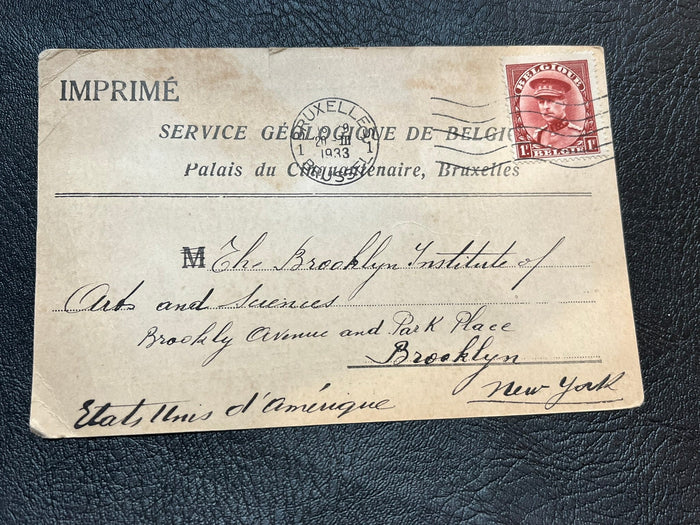 IMPRIMÉ
BELGIQUE
1F 1F
BELGIE
BRUXELLES
1 1
III
1933
BRUSSEL
SERVICE GÉOLOGIQUE DE BELGIQUE
Palais du Cinquantenaire, Bruxelles
M The Brooklyn Institute of
Arts and Sciences
Brookly Avenue and Park Place
Brooklyn
New York
Etats Unis d'Amérique